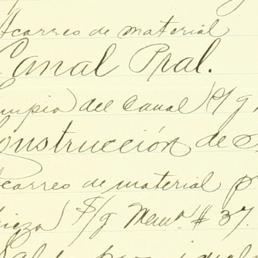 Acarreo de material
Canal Pral.
limpia del Canal S/g
Construcción de
Acarreo de material p
S/g Memo. # 37.